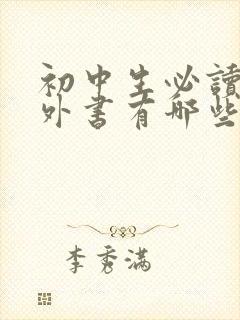 初中生必讀
外書有哪些
李秀滿